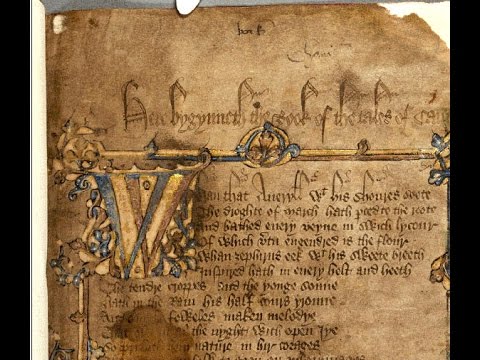 Here bygynneth the Book of the tales of
Whan that Aueryll Wt his shoures soote
The droghte of march hath perced to the roote
And bathed euery veyne in swich lycour
Of which vertu engendred is the flour
Whan zephirus eek wt his sweete breeth
Inspired hath in euery holt and heeth
The tendre croppes and the yonge sonne
Hath in the Ram his half cours yronne
And foweles maken melodye
the nyght with open Iye
So priketh hem nature in hir corages
folk to goon on pilgrymages